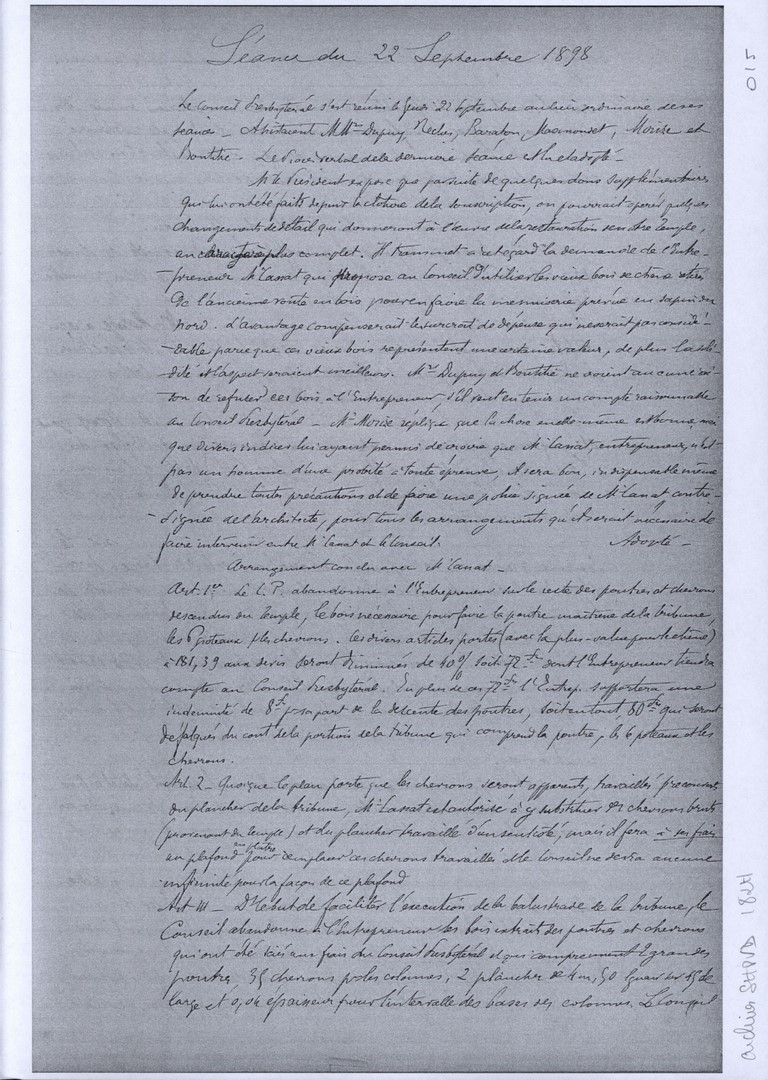 Séance du 22 Septembre 1898
Le Conseil Presbytéral s'est réuni le Jeudi 22 septembre au lieu ordinaire de ses
séances _ Assistaient MMrs Dupuy, Baraton, Marmonset, Morize et
Bontitie. Le Procès verbal de la dernière séance est lu et adopté _
Mr le Président expose que par suite de quelques dons supplémentaires
qui lui ont été faits depuis la cloture de la souscription, on pourrait opérer quelques
changements de détail qui donneront à l'œuvre de la restauration de notre temple,
un caractère plus complet. Il transmet à cet égard la demande de l'Entre-
-preneur Mr Cassat qui propose au Conseil d'utiliser les vieux bois de chêne retirés
De l'ancienne voute en bois pour en faire la menuiserie prévue en sapin du
Nord. L'avantage compenserait le surcroit de dépense qui ne serait pas considé-
-rable parce que ces vieux bois représentent une certaine valeur, de plus la soli-
-dité et l'aspect seraient meilleurs. Mrs Dupuy et Bontitie ne voient aucune rai-
-son de refuser ces bois à l'Entrepreneur, s'il veut en tenir un compte raisonnable
au Conseil Presbytéral _ Mr Morize réplique que la chose en elle-même est bonne, mais
que divers indices lui ayant permis de croire que Mr Cassat, entrepreneur, n'est
pas un homme d'une probité à toute épreuve, il sera bon, indispensable même
de prendre toutes précautions et de faire une police signée de Mr Cassat contre-
-signée de l'architecte, pour tous les arrangements qu'il serait nécessaire de
faire intervenir entre Mr Cassat et le Conseil. Adopté _
Arrangement conclu avec Mr Cassat _
Art. 1er Le C.P. abandonne à l'Entrepreneur sur le reste des poutres et chevrons
descendus du Temple, le bois nécessaire pour faire la poutre maitresse de la tribune,
les Poteaux les chevrons. Les divers articles portés (avec la plus-value pour le chêne)
à 181,39 aux devis seront diminués de 40% soit 72 frs dont l'Entrepreneur tiendra
compte au Conseil Presbytéral. En plus de ces 72 frs l'Entrep. supportera une
indemnité de 8 frs pr sa part de la descente des poutres, soit en tout 80 frs qui seront
défalqués du cout de la portion de la tribune qui comprend la poutre, les 6 poteaux et les
chevrons.
Art. 2 _ Quoique le plan porte que les chevrons seront apparents, travaillés
du plancher de la tribune, Mr Cassat est autorisé à y substituer des chevrons bruts
(provenant du temple) et du plancher travaillé d'un seul côté, mais il fera à ses frais
un plafond en plâtre pour remplacer ces chevrons travaillés et le Conseil ne devra aucune
indemnité pour la façon de ce plafond
Art III _ Dans le but de faciliter l'exécution de la balustrade de la tribune, le
Conseil abandonne à l'Entrepreneur les bois extraits des poutres et chevrons
qui ont été sciés aux frais du Conseil Presbytéral et qui comprennent 2 grandes
poutres, 35 chevrons pr les colonnes, 2 plancher de 4m,50 sur 15 de
large et 0,04 épaisseur pour l'intervalle des bases des colonnes. Le Conseil
015
archives SHPVD 1824